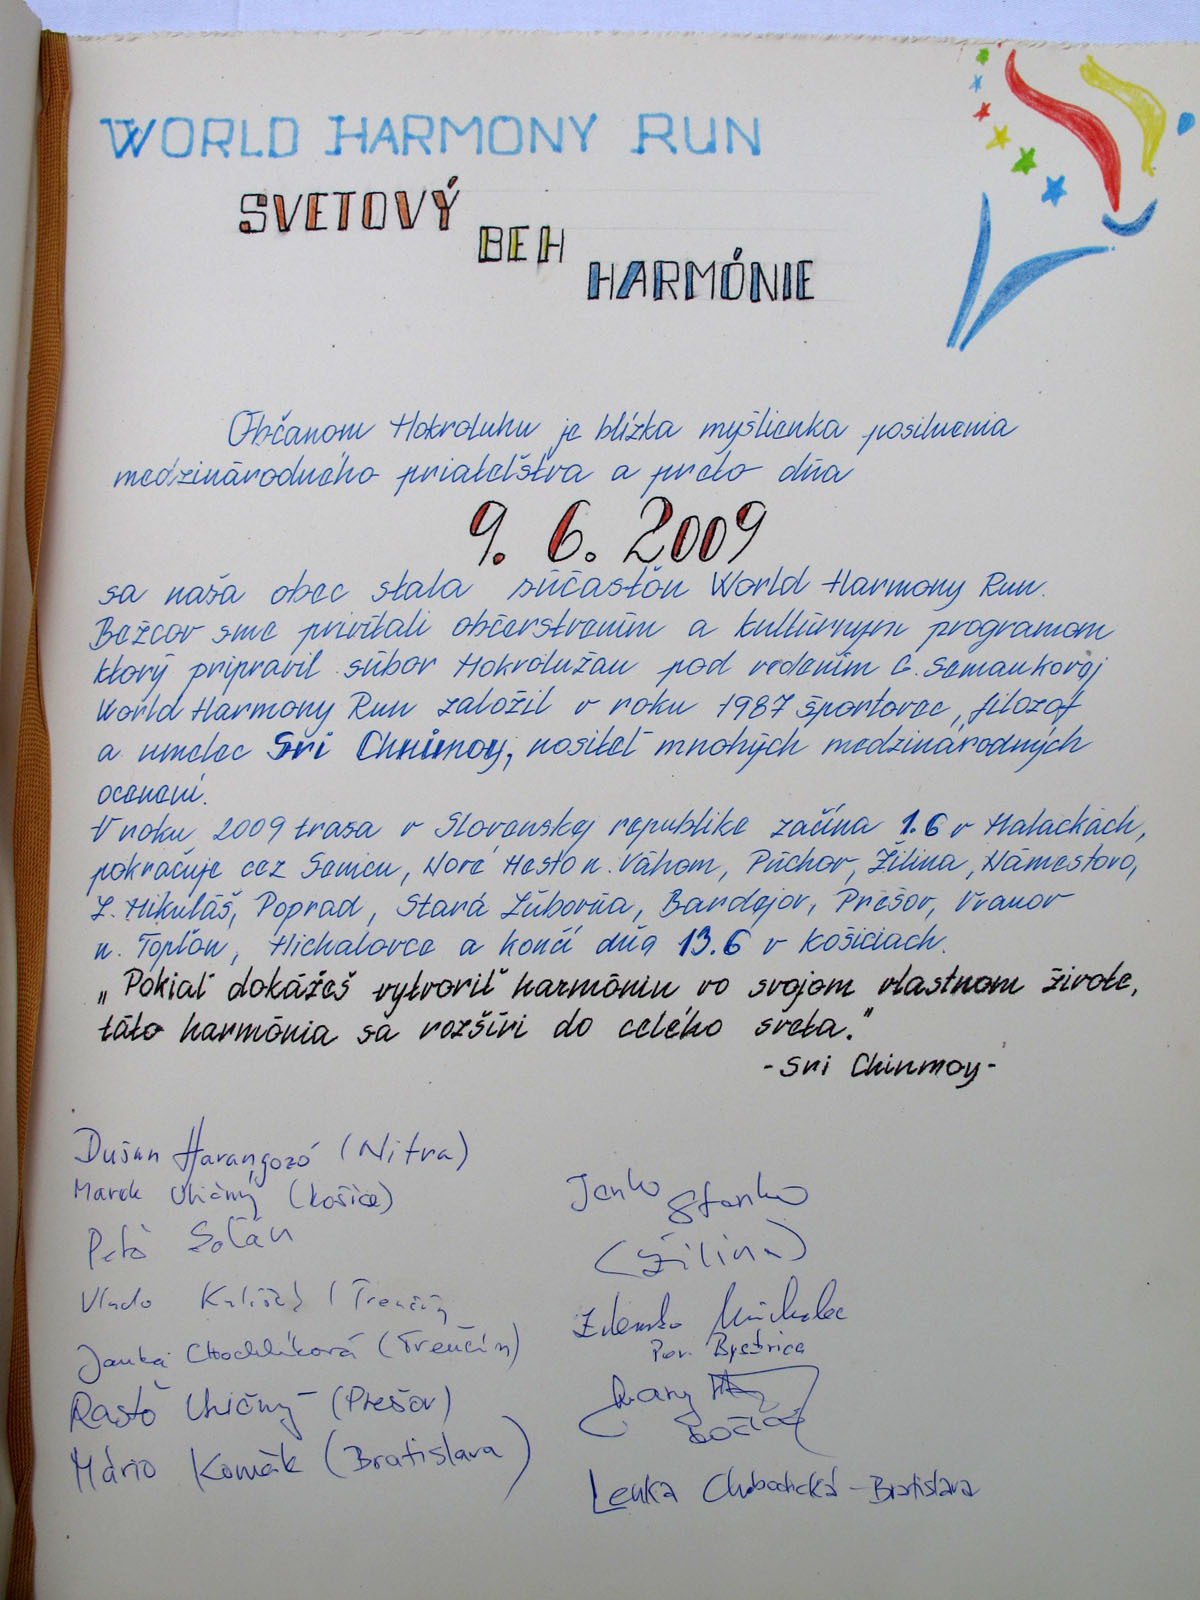 WORLD HARMONY RUN
SVETOVÝ
BEH
HARMÓNIE
Občanom Mokroluhu je blízka myšlienka posilnenia
medzinárodného priateľstva a preto dňa
9. 6. 2009
sa naša obec stala súčasťou World Harmony Run.
Bežcov sme privítali občerstvením a kultúrnym programom
ktorý pripravil súbor Mokrolužan pod vedením C. Semankovej
World Harmony Run založil v roku 1987 športovec, filozof
a umelec Sri Chinmoy, nositeľ mnohých medzinárodných
ocenení.
V roku 2009 trasa v Slovenskej republike začína 1.6 v Malackách,
pokračuje cez Senicu, Nové Mesto n. Váhom, Púchov, Žilina, Námestovo,
L. Mikuláš, Poprad, Stará Ľubovňa, Bardejov, Prešov, Vranov
n. Topľou, Michalovce a končí dňa 13.6 v Košiciach.
„Pokiaľ dokážeš vytvoriť harmóniu vo svojom vlastnom živote,
táto harmónia sa rozšíri do celého sveta."
- Sri Chinmoy -
Dušan Harangozó (Nitra)
Marek Uličný (Košice)
Peťo Soľán
Vlado (Trenčín
Janka Chochlíková (Trenčín)
Rasťo Uličný (Prešov)
Mário Komák (Bratislava)
Janko Stanko
(Žilina)
Zdenko Michalec
Pov. Bystrica
Lenka - Bratislava